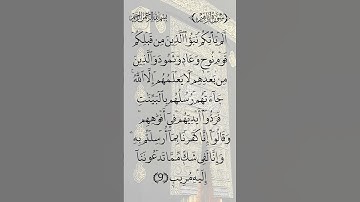 ﴿سورة إبراهيم﴾ بسم الله الرحمن الرحيم
ألم يأتكم نبؤا الذين من قبلكم
قوم نوح وعاد وثمود والذين
من بعدهم لا يعلمهم إلا الله
جاءتهم رسلهم بالبينت
فردوا أيديهم في أفوههم
وقالوا إنا كفرنا بما أرسلتم به
وإنا لفي شك مما تدعوننا
إليه مريب (9)